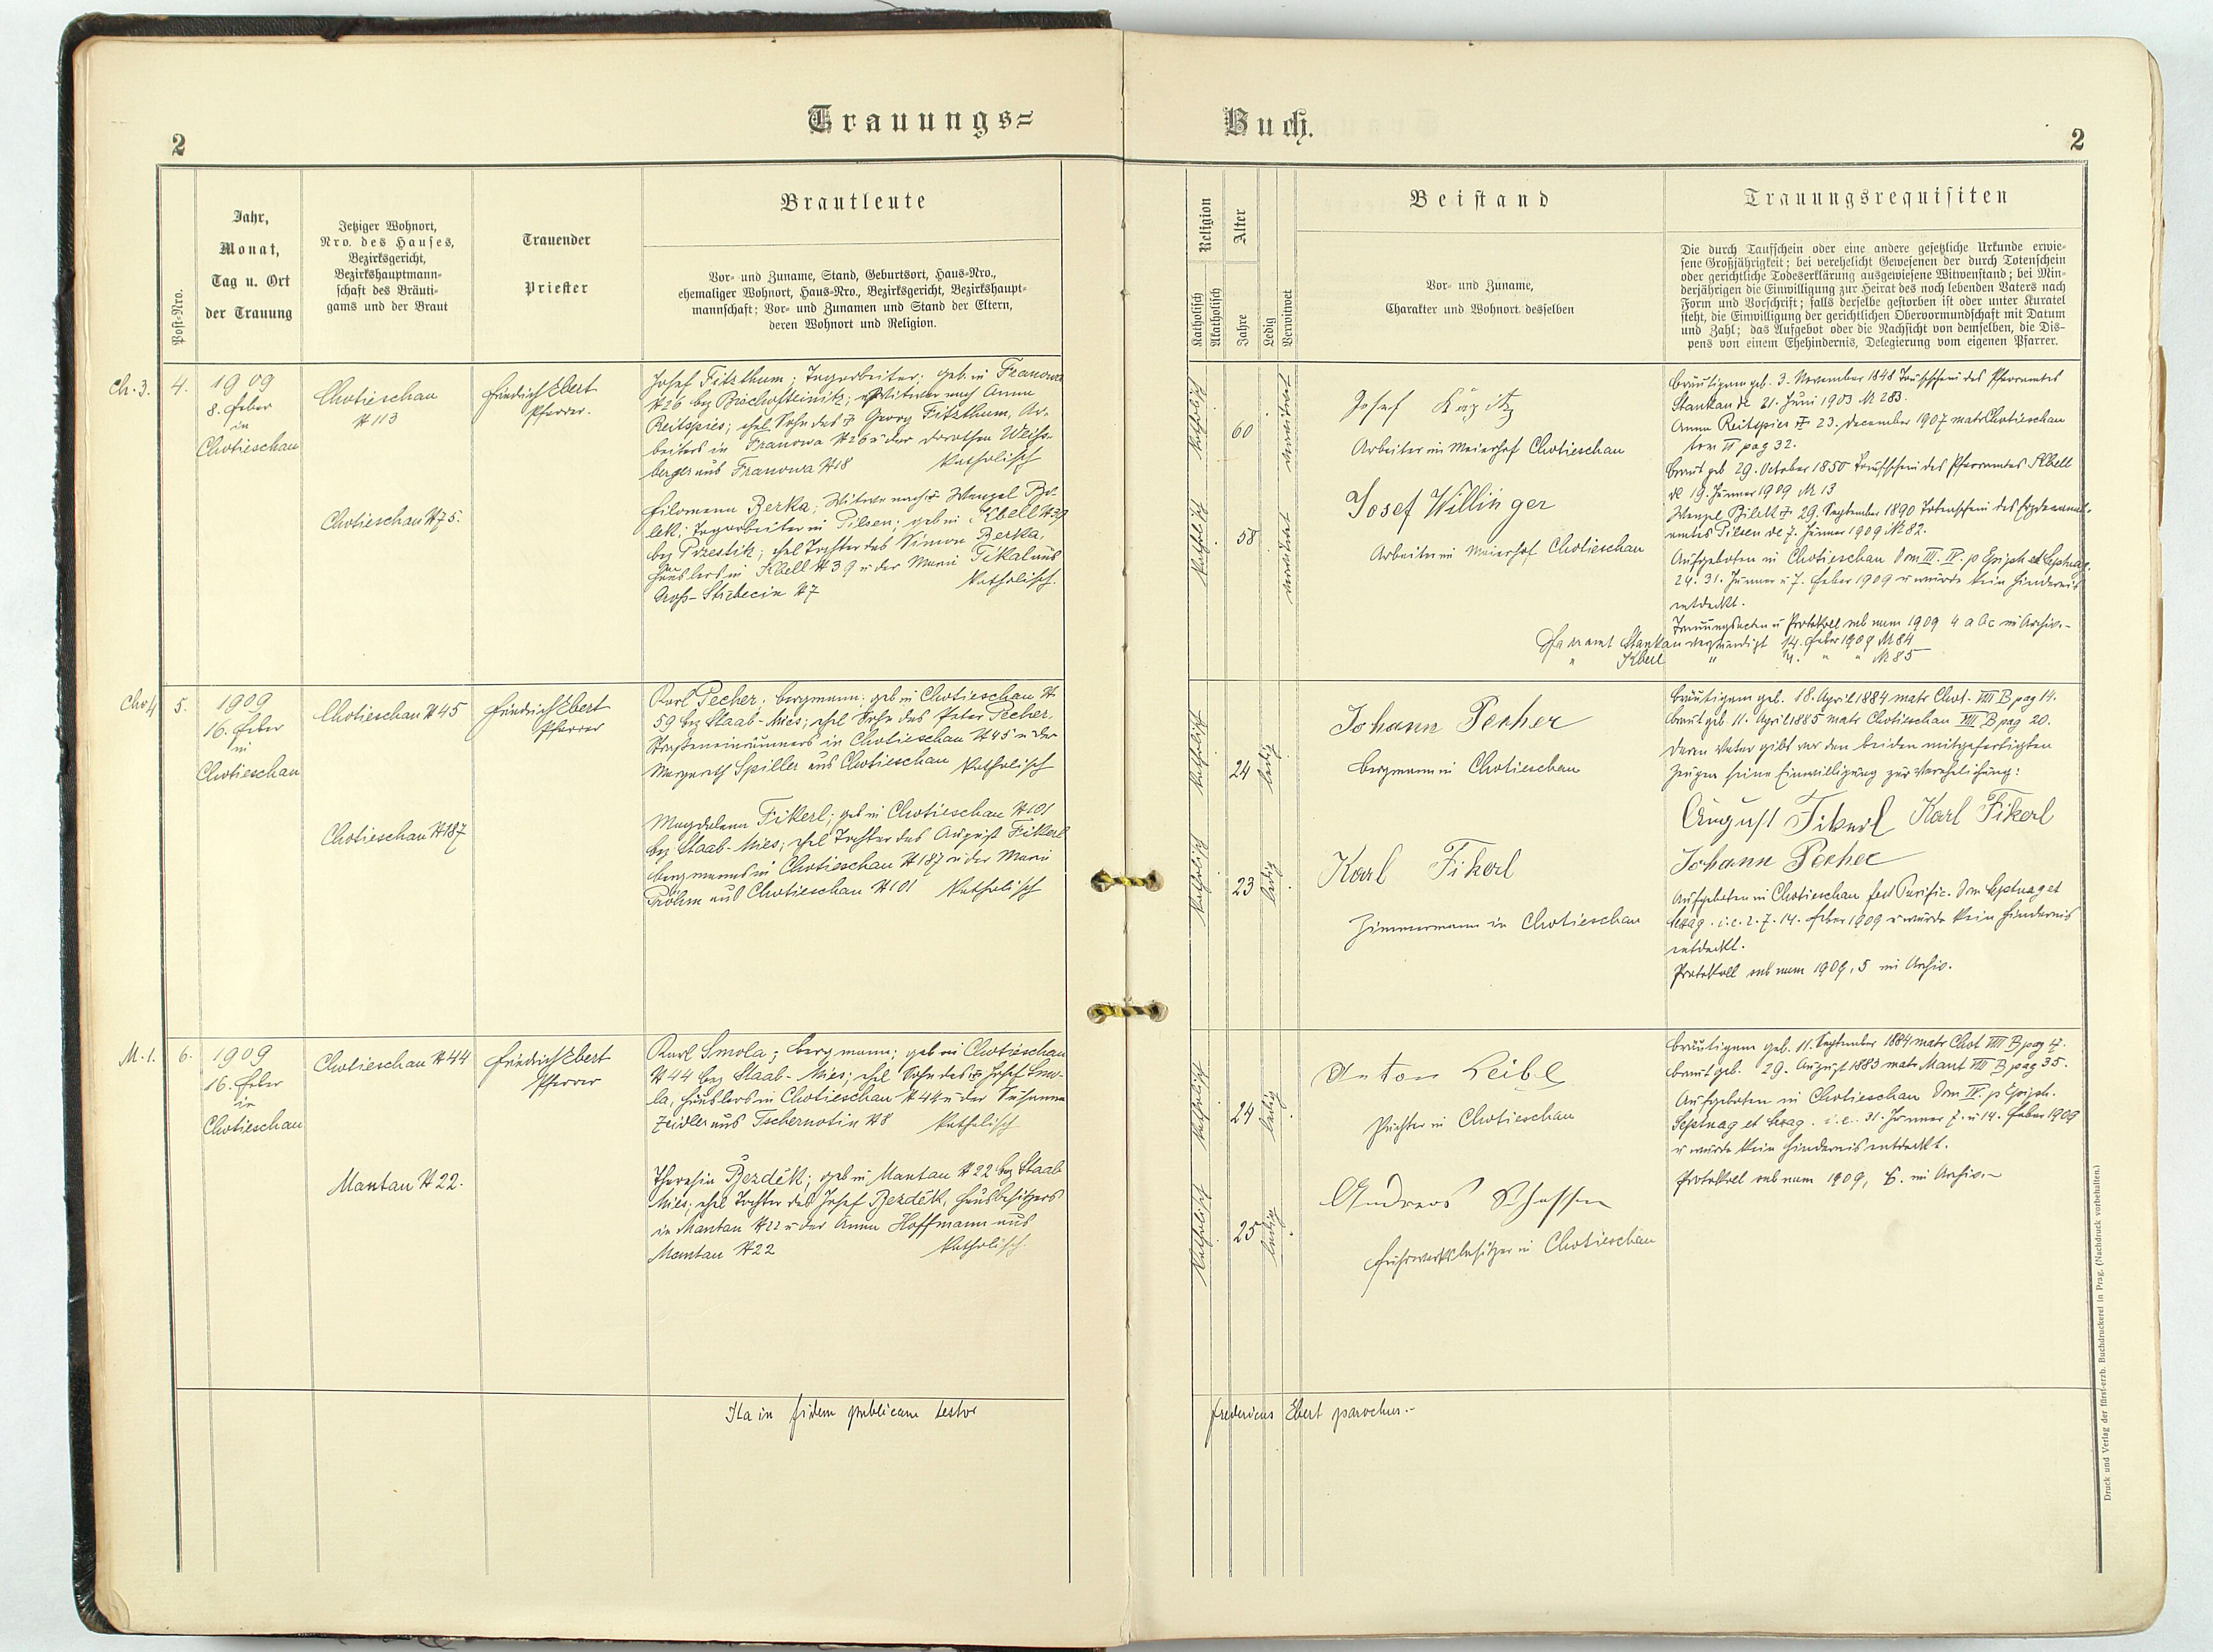 Trauungs=
Buch.
2
2
Post-Nro.
Jahr,
Monat,
Tag u. Ort
der Trauung
Jetziger Wohnort,
Nro. des Hauses,
Bezirksgericht,
Bezirkshauptmann-
schaft des Bräuti-
gams und der Braut
Trauender
Priester
Brautleute
Vor- und Zuname, Stand, Geburtsort, Haus-Nro.,
ehemaliger Wohnort, Haus-Nro., Bezirksgericht, Bezirkshaupt-
mannschaft; Vor- und Zunamen und Stand der Eltern,
deren Wohnort und Religion.
Religion
Katholisch
Akatholisch
Alter
Jahre
Ledig
Verwitwet
Beistand
Vor- und Zuname,
Charakter und Wohnort desselben
Trauungsrequisiten
Die durch Taufschein oder eine andere gesetzliche Urkunde erwie-
sene Großjährigkeit; bei verehelicht Gewesenen der durch Totenschein
oder gerichtliche Todeserklärung ausgewiesene Witwenstand; bei Min-
derjährigen die Einwilligung zur Heirat des noch lebenden Vaters nach
Form und Vorschrift; falls derselbe gestorben ist oder unter Kuratel
steht, die Einwilligung der gerichtlichen Obervormundschaft mit Datum
und Zahl; das Aufgebot oder die Nachsicht von demselben, die Dis-
pens von einem Ehehindernis, Delegierung vom eigenen Pfarrer.
Ch. 3.
4.
1909
8. Feber
in
Chotieschau
Chotieschau
N 113
Chotieschau N 75.
Friedrich Ebert
Pfarrer.
Josef Fitzthum; Tagarbeiter; geb. in Franowa
N 26 bez Bischofteinitz; Witwer nach Anna
Reitspies; ehel Sohn des † Georg Fitzthum, Ar-
beiters in Franowa N 26 u der Dorothea Weiss-
berger aus Franowa N 18 Katholisch
Filomena Berka; Witwe nach † Wenzel Bi-
lek; Tagarbeiter in Pilsen; geb in Kbell N 39
bez Przestik; ehel Tochter des Simon Berka,
Häuslers in Kbell N 39 u der Maria Tikal aus
Gross-Strbecin N 7 Katholisch.
Katholisch
60
verwitwet
Katholisch
58
verwitwet
Josef Kapitz
Arbeiter im Meierhof Chotieschau
Josef Willinger
Arbeiter im Meierhof Chotieschau
Bräutigam geb. 3. November 1848 Taufschein des Pfarramtes
Stankau de 21. Juni 1903 N 283.
Anna Reitspies † 23. December 1907 matr Chotieschau
tom II pag 32.
Braut geb 29. October 1850 Taufschein des Pfarramtes Kbell
de 19. Jänner 1909 N 13
Wenzel Bilek † 29. September 1890 Totenschein des Erzdecanal-
amtes Pilsen de 7. Jänner 1909 N 82.
Aufgeboten in Chotieschau Dom III. IV. p Epiph et Septuag.
24. 31. Jänner u 7. Feber 1909 u wurde kein Hindernis
entdeckt.
Trauungsacten u Protokoll sub num 1909 4 a b c im Archiv.-
Pfarramt Stankau verständigt 14. Feber 1909 N 84
" Kbell " 14. " " N 85
Cho 4
5.
1909
16. Feber
in
Chotieschau
Chotieschau N 45
Chotieschau N 187
Friedrich Ebert
Pfarrer
Karl Pecher; Bergmann; geb in Chotieschau N
59 bez Staab-Mies; ehel Sohn des Peter Pecher,
Strasseneinräumers in Chotieschau N 45 u der
Margareth Spiller aus Chotieschau Katholisch
Magdalena Fikerl; geb in Chotieschau N 101
bez Staab-Mies; ehel Tochter des August Fikerl
Bergmanns in Chotieschau N 187 u der Maria
Pröhm aus Chotieschau N 101 Katholisch
Katholisch
24
ledig
Katholisch
23
ledig
Johann Pecher
Bergmann in Chotieschau
Karl Fikerl
Zimmermann in Chotieschau
Bräutigam geb. 18. April 1884 matr Chot. VIII B pag 14.
Braut geb. 11. April 1885 matr Chotieschau VIII B pag 20.
Deren Vater gibt vor den beiden mitgefertigten
Zeugen seine Einwilligung zur Verehelichung:
August Fikerl Karl Fikerl
Johann Pecher
Aufgeboten in Chotieschau fest Purific. Dom Septuag et
Sexag. i.e. 2. 7. 14. Feber 1909 u wurde kein Hindernis
entdeckt.
Protokoll sub num 1909, 5 im Archiv.
M. 1.
6.
1909
16. Feber
in
Chotieschau
Chotieschau N 44
Mantau N 22.
Friedrich Ebert
Pfarrer
Karl Smola; Bergmann; geb in Chotieschau
N 44 bez Staab-Mies; ehel Sohn des † Josef Smo-
la, Häuslers in Chotieschau N 44 u der Susanna
Zeidler aus Tschernotin N 8 Katholisch
Theresia Bezděk; geb in Mantau N 22 bez Staab
Mies; ehel Tochter des Josef Bezděk, Hausbesitzers
in Mantau N 22 u der Anna Hoffmann aus
Mantau N 22 Katholisch.
Katholisch
24
ledig
Katholisch
25
ledig
Anton Leibl
Pächter in Chotieschau
Andreas
Fuhrwerksbesitzer in Chotieschau
Bräutigam geb. 11. September 1884 matr Chot VIII B pag 17.
Braut geb. 29. August 1883 matr Mant VIII B pag 35.
Aufgeboten in Chotieschau Dom IV. p Epiph.
Septuag et Sexag. i.e. 31. Jänner 7. u 14. Feber 1909
u wurde kein Hindernis entdeckt.
Protokoll sub num 1909, 6. im Archiv.-
Ita in fidem publicam testor
Fredericus Ebert parochus.-
Druck und Verlag der fürst-erzb. Buchdruckerei in Prag. (Nachdruck vorbehalten.)